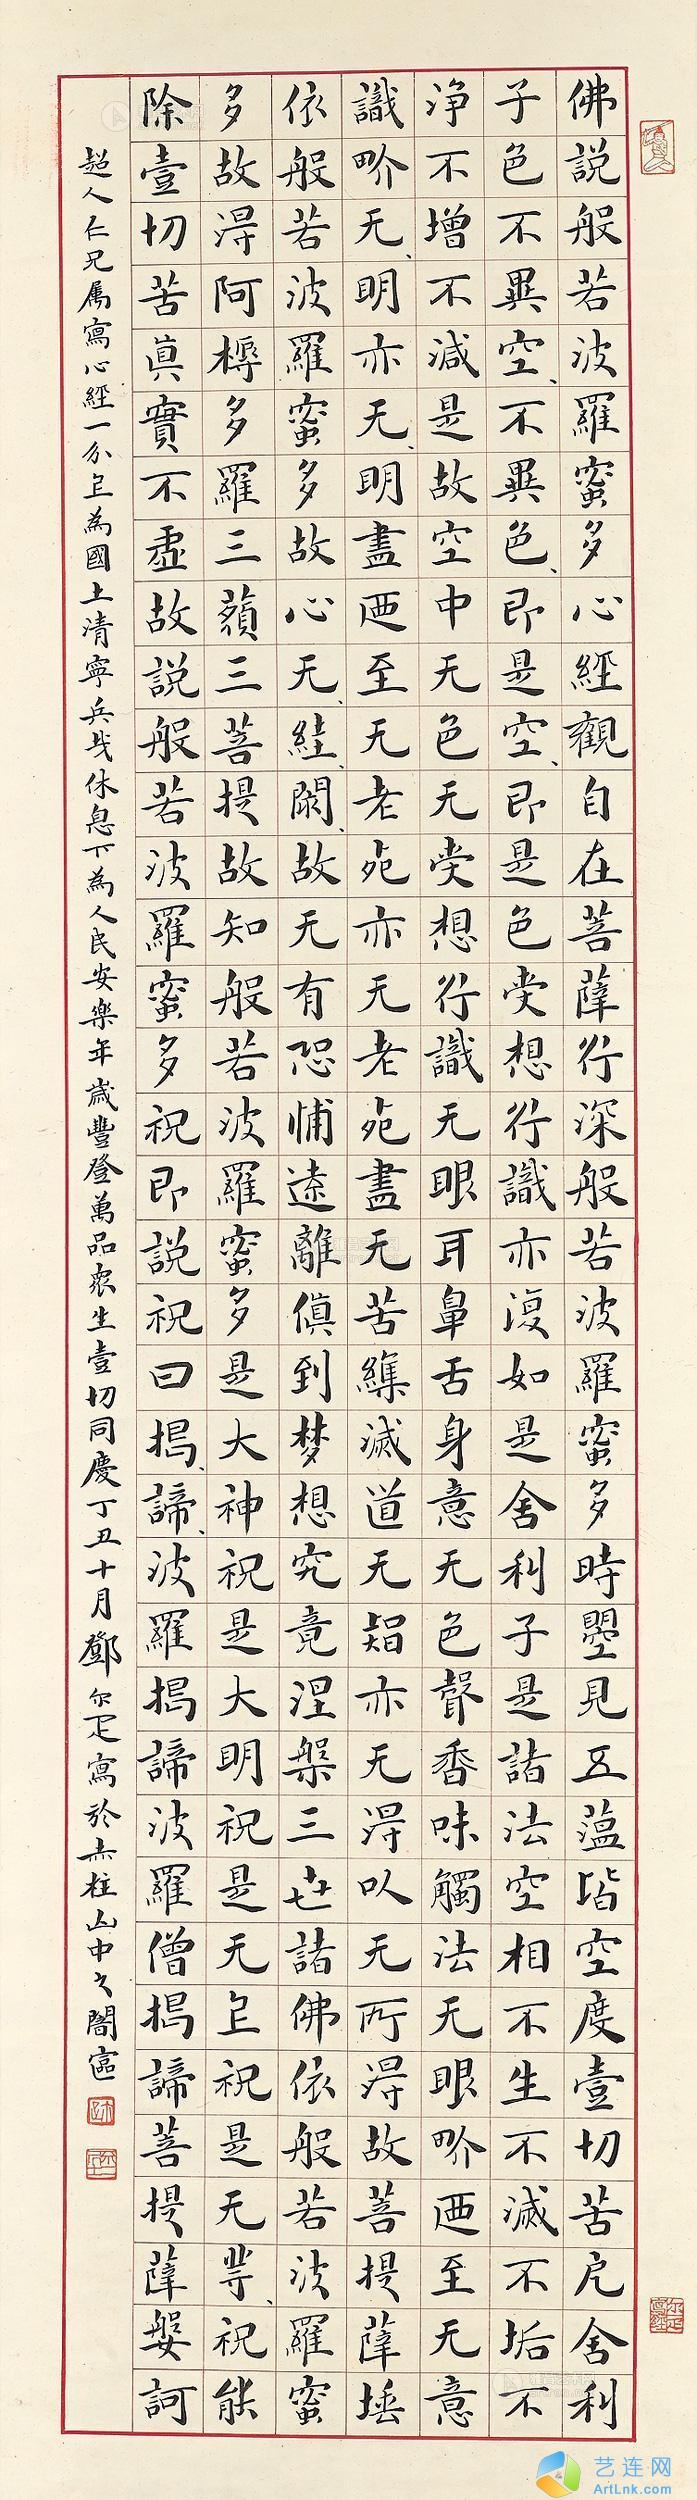 佛說般若波羅蜜多心經觀自在菩薩行深般若波羅蜜多時曌見五蕰皆空度壹切苦戹舍利
子色不異空、不異色、即是空、即是色受想行識亦復如是舍利子是諸法空相不生不滅不垢不
淨不增不減是故空中无色无受想行識无眼耳鼻舌身意无色聲香味觸法无眼界迺至无意
識界无、明亦无、明盡迺至无老死亦无老死盡无苦集滅道无智亦无得以无所得故菩提薩埵
依般若波羅蜜多故心无、絓、閡、故无有恐怖遠離傎到梦想究竟涅槃三世諸佛依般若波羅蜜
多故得阿耨多羅三藐三菩提故知般若波羅蜜多是大神祝是大明祝是无上祝是无等、祝能
除壹切苦真實不虛故說般若波羅蜜多祝即說祝曰揭、諦、波羅揭諦波羅僧揭諦菩提薩婆訶
超人仁兄属寫心經一分上為國土清寧兵戈休息下為人民安樂年歲豐登萬品眾生壹切同慶丁丑十月鄧尔疋寫於赤柱山中之闇
艺连网
ArtLnk.com